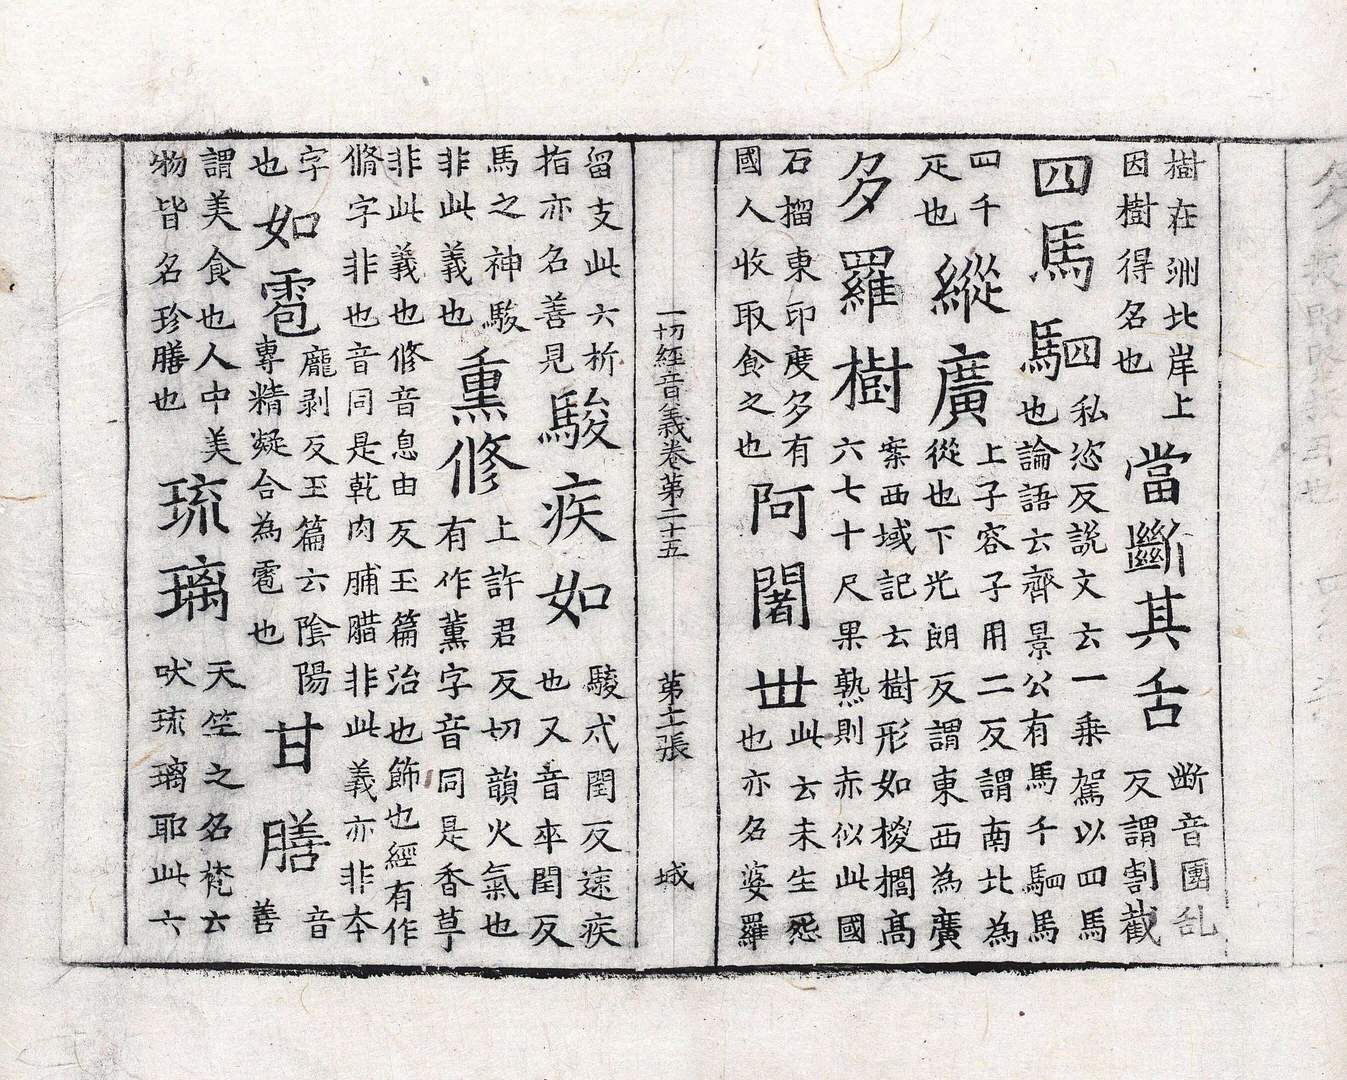 樹在洲北岸上
因樹得名也
當斷其舌
斷音團乱
反謂割截
四馬駟
私恣反說文云一乗駕以四馬
也論語云齊景公有馬千駟馬
四千
疋也
縱廣
上子容子用二反謂南北為
從也下光朗反謂東西為廣
多羅樹
案西域記云樹形如椶櫚高
六七十尺果熟則赤似此國
石榴東印度多有
國人收取食之也
阿闍丗
此云未生怨
也亦名婆羅
一切經音義卷第二十五 第十二張 城
留支此云析
指亦名善見
駿疾如
駿忒閏反速疾
也又音卒閏反
馬之神駿
非此義也
熏修
上許君反切韻火氣也
有作薰字音同是香草
非此義也修音息由反玉篇治也飾也經有作
脩字非也音同是乾肉脯腊非此義亦非本
字
也
如雹
龐剥反玉篇云陰陽
專精凝合為雹也
甘膳
音
善
謂美食也人中美
物皆名珍膳也
琉璃
天竺之名梵云
吠琉璃耶此云